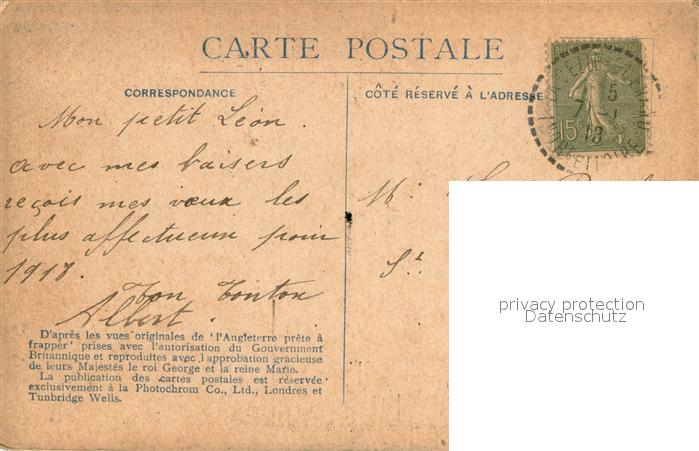 CARTE POSTALE
CORRESPONDANCE
CÔTÉ RÉSERVÉ À L'ADRESSE
15
5
Mon petit Léon.
avec mes baisers
reçois mes vœux les
plus affectueux pour
1918.
Ton Tonton
Albert.
M.
St
D'après les vues originales de "l'Angleterre prête à
frapper" prises avec l'autorisation du Gouvernment
Britannique et reproduites avec l approbation gracieuse
de leurs Majestés le roi George et la reine Marie.
La publication des cartes postales est réservée
exclusivement à la Photochrom Co., Ltd., Londres et
Tunbridge Wells.
privacy protection
Datenschutz